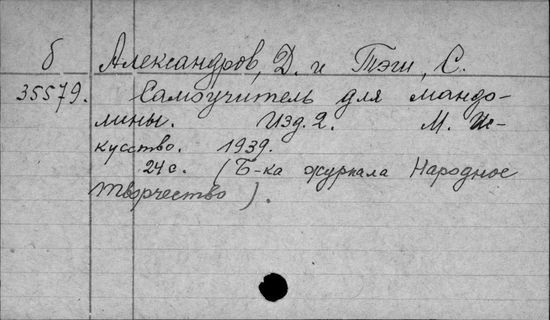 б Александров, Д. и Тэш, С.
35579. Самоучитель для мандо-
лины. Изд. 2. М. Ис-
кусство. 1939.
24 с. (Б-ка журнала Народное
творчество).